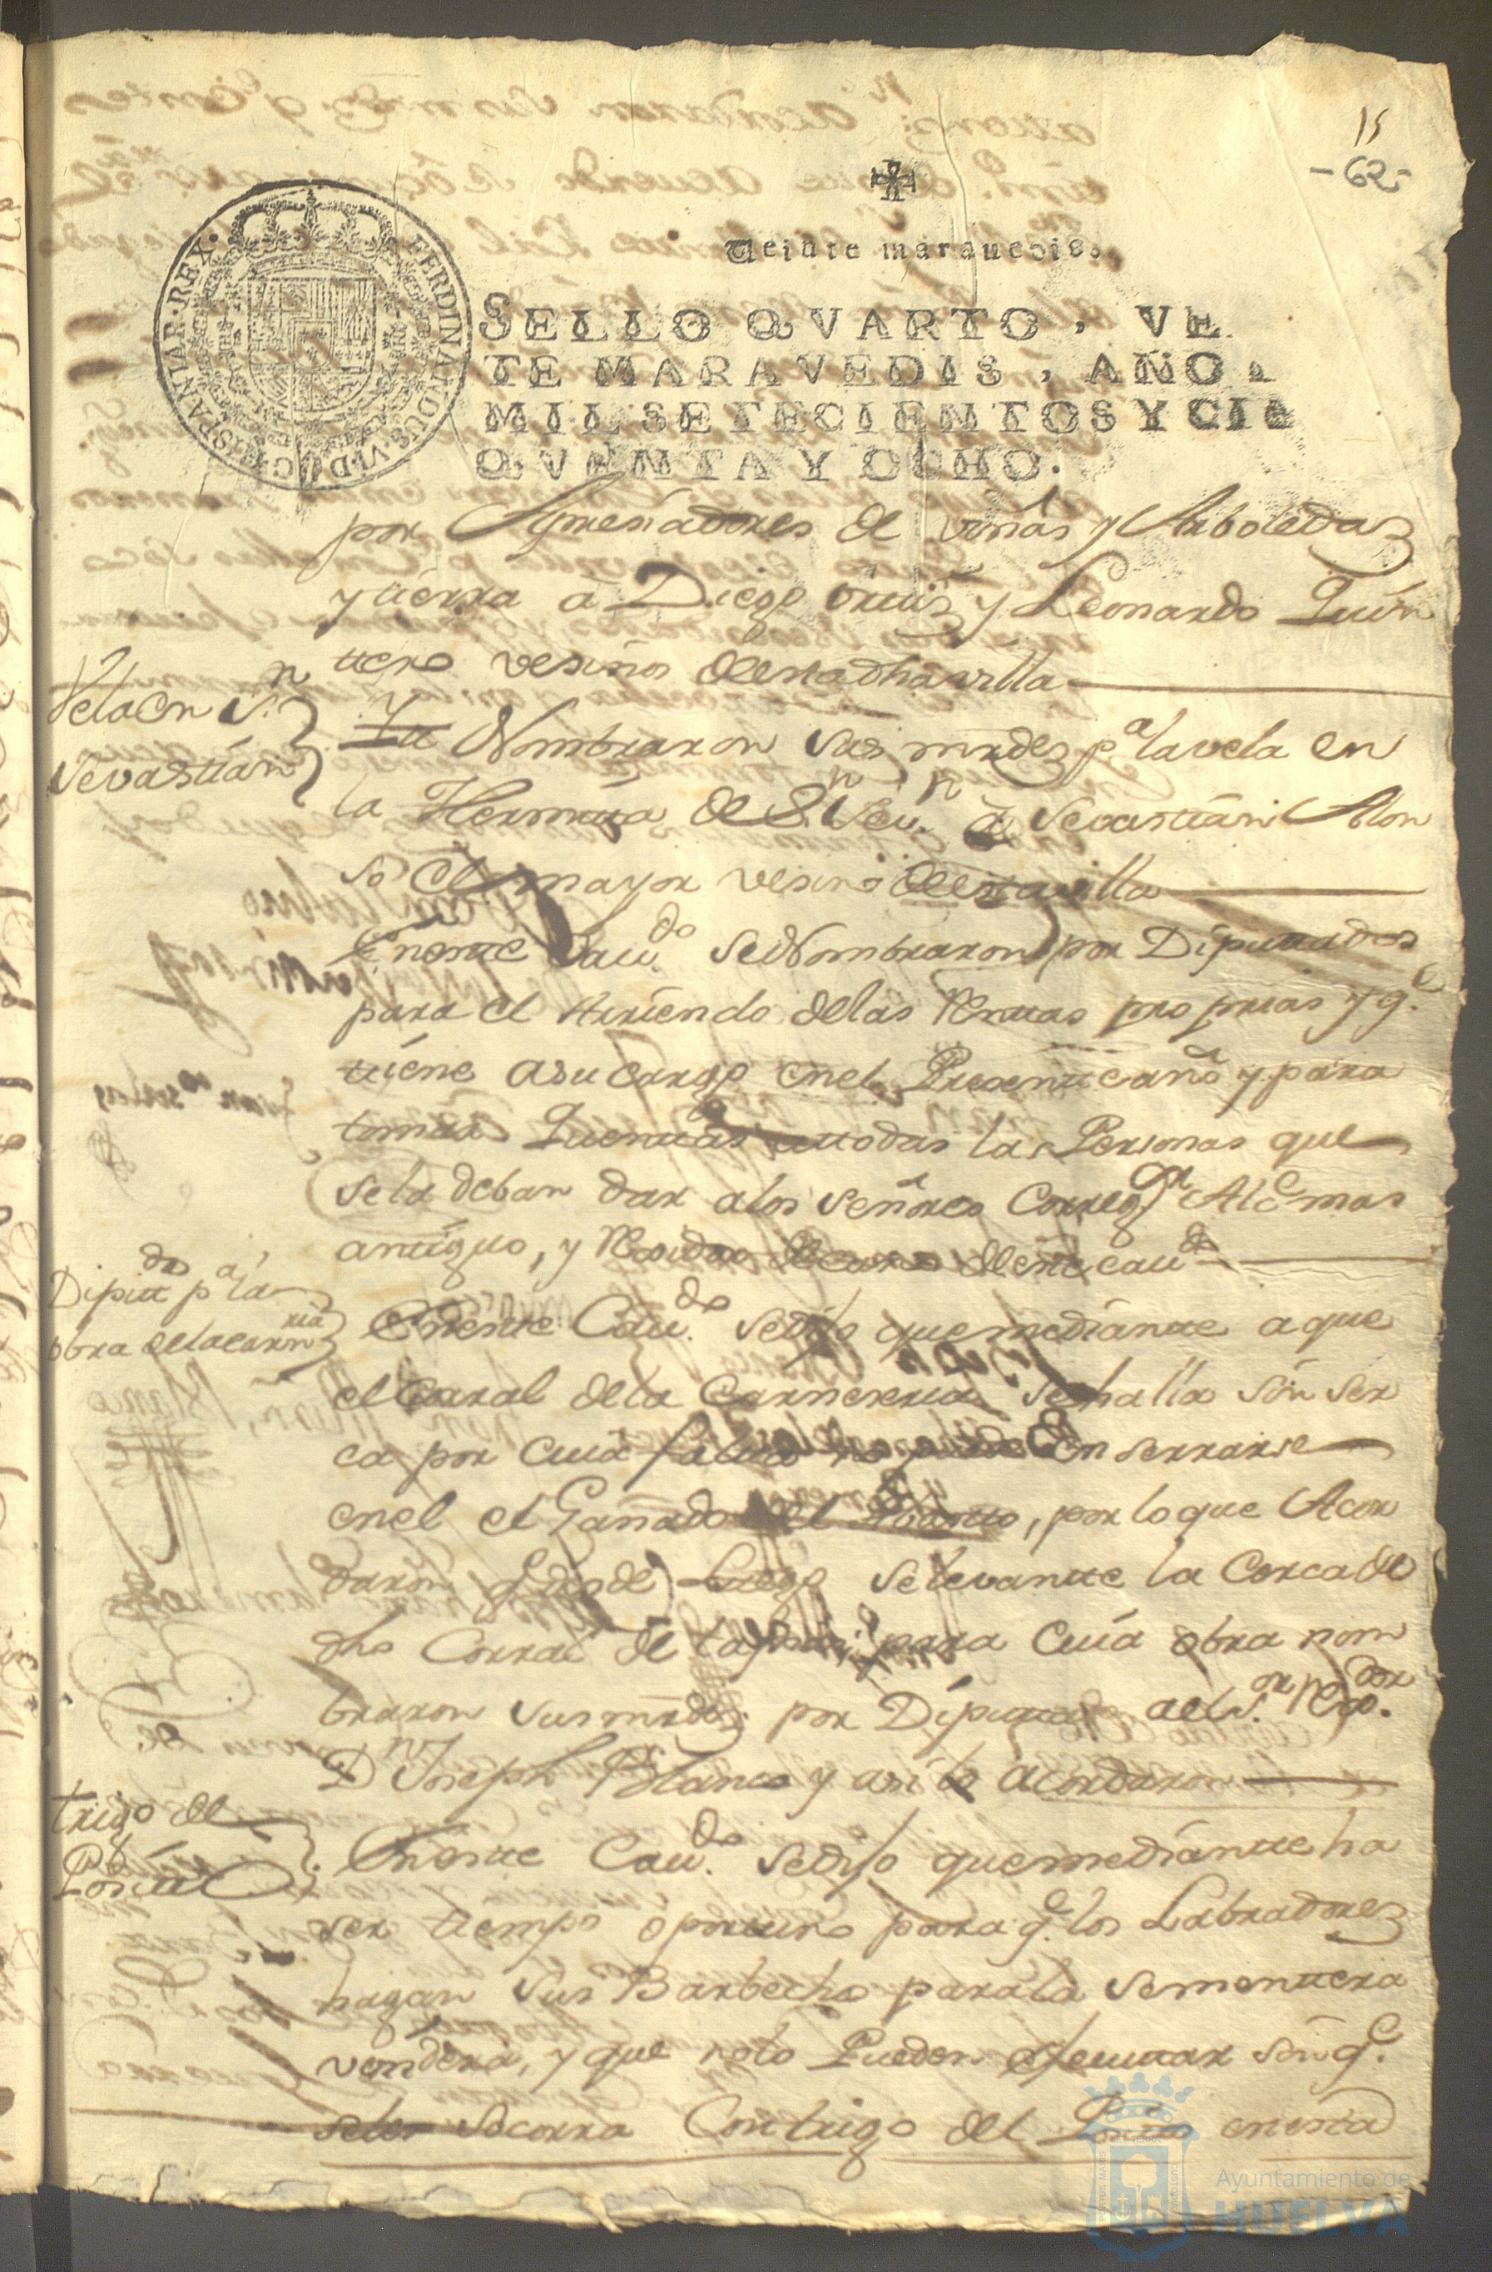 15
-62-
Veinte maravedis.
FERDINANDUS·VI·D·G·HISPANIAR·REX·
SELLO QVARTO, VE
TE MARAVEDIS, AÑO
MIL SETECIENTOS Y CIN
QVENTA Y OCHO.
por Apresiadores de viñas y Arboledas
y tierra a Diego Ruis y Leonardo Quin
tero vesinos desta dha villa
Vela en Sn.
Sevastian
Nombraron sus mrdes pa. la vela en
la Hermita de Sn. Sevn. a Sevastian Alon
so el mayor vesino desta villa
En este Cavdo. se Nombraron por Diputados
para el Arriendo de las Rentas proprias y qe.
tiene a su cargo en el Presente año y para
tomar Quentas a todas las Personas que
se la deban dar a los Señores Corregor. Alce mas
antiguo, y Rexidor deste cavdo
Diputdo pa. la
obra de la carnria
En este Cavdo. se dijo que mediante a que
el Corral de la Carneseria se halla sin ser
ca por cuia falta no puede enserrarse
en el el Ganado del Abasto, por lo que Acor
daron q desde Luego se levante la Cerca de
dho Corral de para cuia obra nom
braron sus mrdes. por Diputado al Sor. Rexdor.
Dn Joseph Blanco y asi lo acordaron
trigo del
Posito
En este Cavdo. se dijo que mediante ha
ser tiempo oportuno para qe. los Labradores
hagan sus Barbechos para la sementera
vendera, y que no lo Pueden efecutar sin qe.
se les socorra Con trigo del Posito en esta
Ayuntamiento de
HUELVA